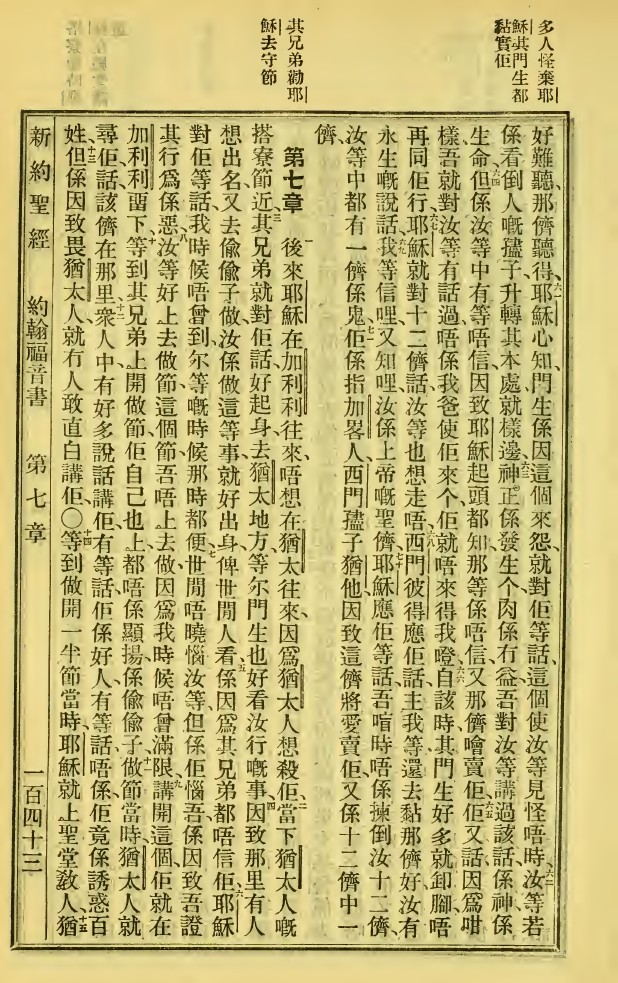 多人怪棄耶
穌其門生都
黏實佢
其兄弟勸耶
穌去守節
好難聽、那儕聽得、六一耶穌心知、門生係因這個來怨、就對佢等話、這個使汝等見怪唔時、六二汝等若
係看倒人嘅孻子、升轉其本處就樣邊、六三神正係發生个、肉係冇益、吾對汝等講過該話、係神係
生命、六四但係汝等中有等唔信、因致耶穌起頭都知那等係唔信、又那儕噲賣佢、六五佢又話、因爲咁
樣吾就對汝等有話過、唔係我爸使佢來个、佢就唔來得我嶝、六六自該時其門生好多就卸腳、唔
再同佢行、六七耶穌就對十二儕話、汝等也想走唔、六八西門彼得應佢話、主、我等還去黏那儕好、汝有
永生嘅說話、六九我等信哩、又知哩、汝係上帝嘅聖儕、七十耶穌應佢等話、吾唔時唔係揀倒汝十二儕、
汝等中都有一儕係鬼、七一佢係指加畧人、西門孻子猶他、因致這儕將愛賣佢、又係十二儕中一
儕、
第七章 一後來耶穌在加利利往來、唔想在猶太往來、因爲猶太人想殺佢、二當下猶太人嘅
搭寮節近、三其兄弟就對佢話、好起身去猶太地方、等尔門生也好看汝行嘅事、四因致那里有人
想出名、又去偷偷子做、汝係做這等事、就好出身俾世閒人看、五係因爲其兄弟都唔信佢、六耶穌
對佢等話、我時候唔曾到、尔等嘅時候那時都便、七世閒唔曉惱汝等、但係佢惱吾、係因致吾證
其行爲係惡、八汝等好上去做節、這個節吾唔上去做、因爲我時候唔曾滿限、九講開這個、佢就在
加利利畱下、十等到其兄弟上開做節、佢自己也上、都唔係顯揚、係偷偷子、十一做節當時、猶太人就
尋佢、話、該儕在那里、十二衆人中有好多說話講佢、有等話、佢係好人、有等話、唔係、佢竟係誘惑百
姓、十三但係因致畏猶太人、就冇人敢直白講佢、〇十四等到做開一半節當時、耶穌就上聖堂教人、十五猶
新約聖經 約翰福音書 第七章 一百四十三